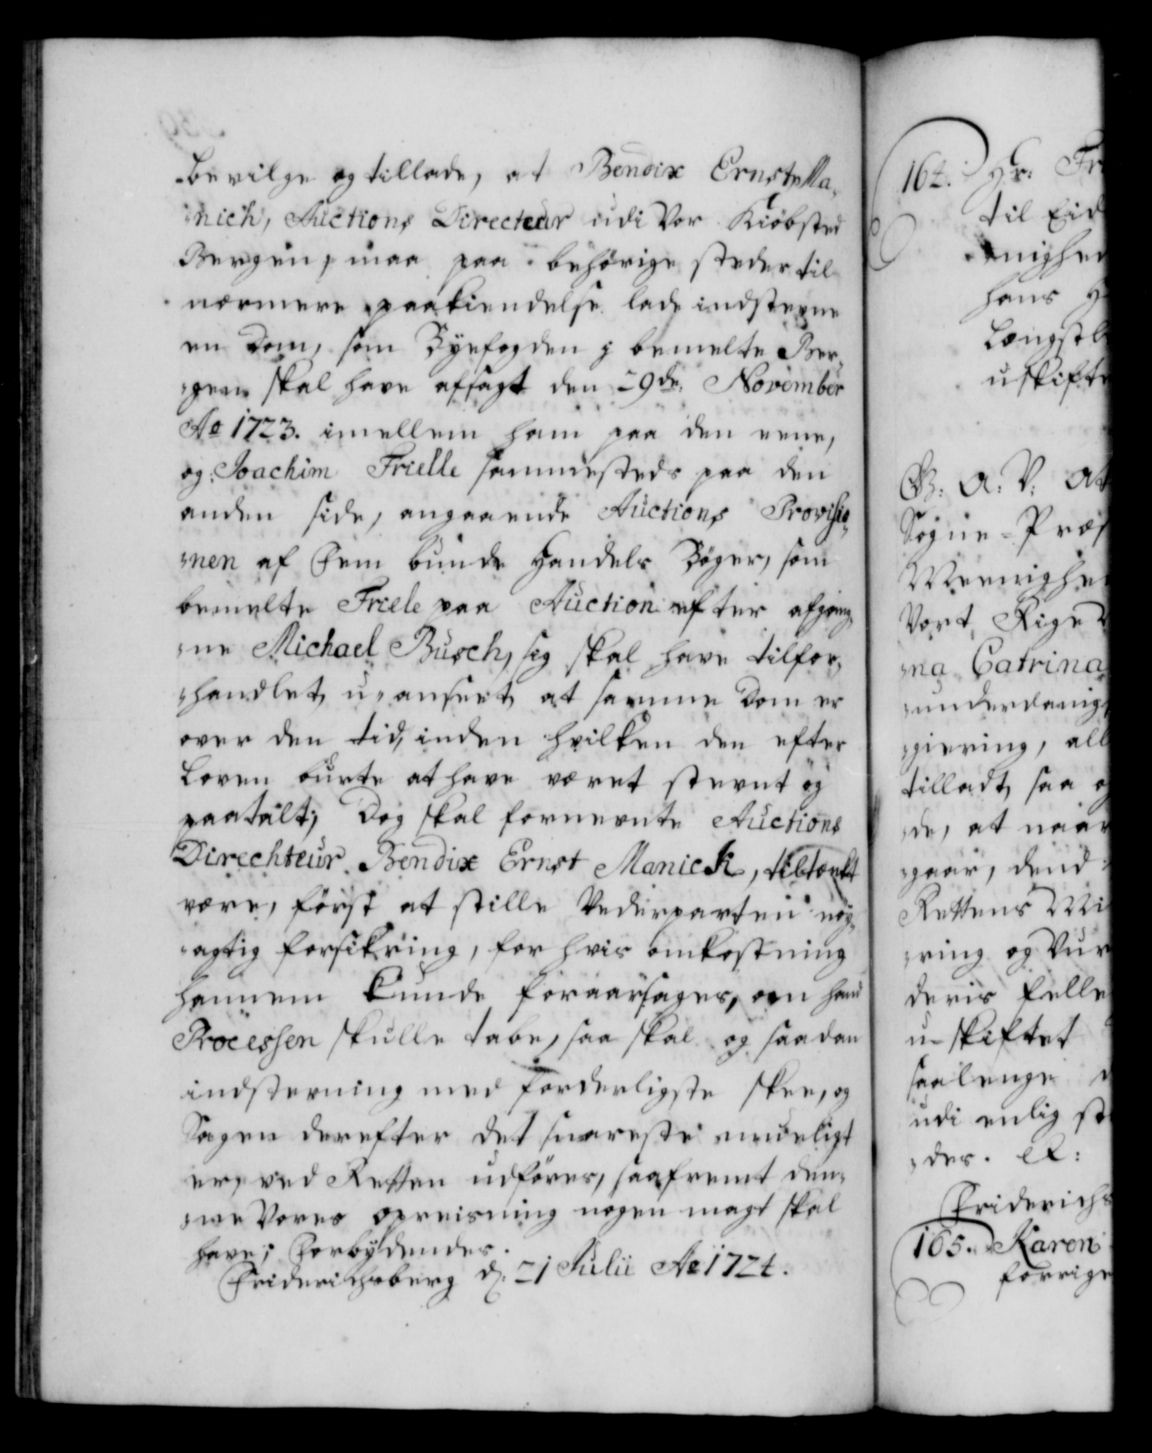 bevilge og tillade, at Bendix Ernst Ma-
nich, Auctions Directeur udi Vor Kiöbsted
Bergen, maa paa behörige steder til
nærmere paakiendelse lade indstevne
en Dom, som Byefogden i bemelte Ber-
gen skal have afsagt den 29de November
Ao 1723. imellem ham paa den eene,
og Joachim Frielle sammesteds paa den
anden side, angaaende Auctions Provisio-
nen af Fem bunde Handels Bøger, som
bemelte Friele paa Auction efter afgang-
ne Michael Büsch, sig skal have tilfor-
handlet, u-anseet at samme Dom er
over den tid, inden hvilken den efter
Loven burte at have været stevnt og
paatalt; Dog skal fornevnte Auctions
Direchteur Bendix Ernst Manick, tiltænkt
være, först at stille Vederparten nöy-
agtig forsikring, for hvis omkostning
hannem kunde foraarsages, om hand
Processen skulle tabe, saa skal og saadan
indstevning med forderligste skee, og
Sagen derefter det snareste mueligt
er, ved Retten udföres, saafremt den-
ne Vores opreisning nogen magt skal
have; Forbydendes.
Friderichsberg d. 21 Julii Ao 1724.
164. Hr: Fri
til Eid
nighed
hans H
Longstl
uskifte
G: A: V: At
Sogne-Præs
Meenighe
Vort Rige
na Catrina
underdanigs
giering, all
tilladt, saa o
de, at naar
gaar, dend
Rettens Mi
ring og Vur
deris felle
u-skiftet
saalenge
udi enlig st
des. etc:
Friderichs
165. Karen
forrige